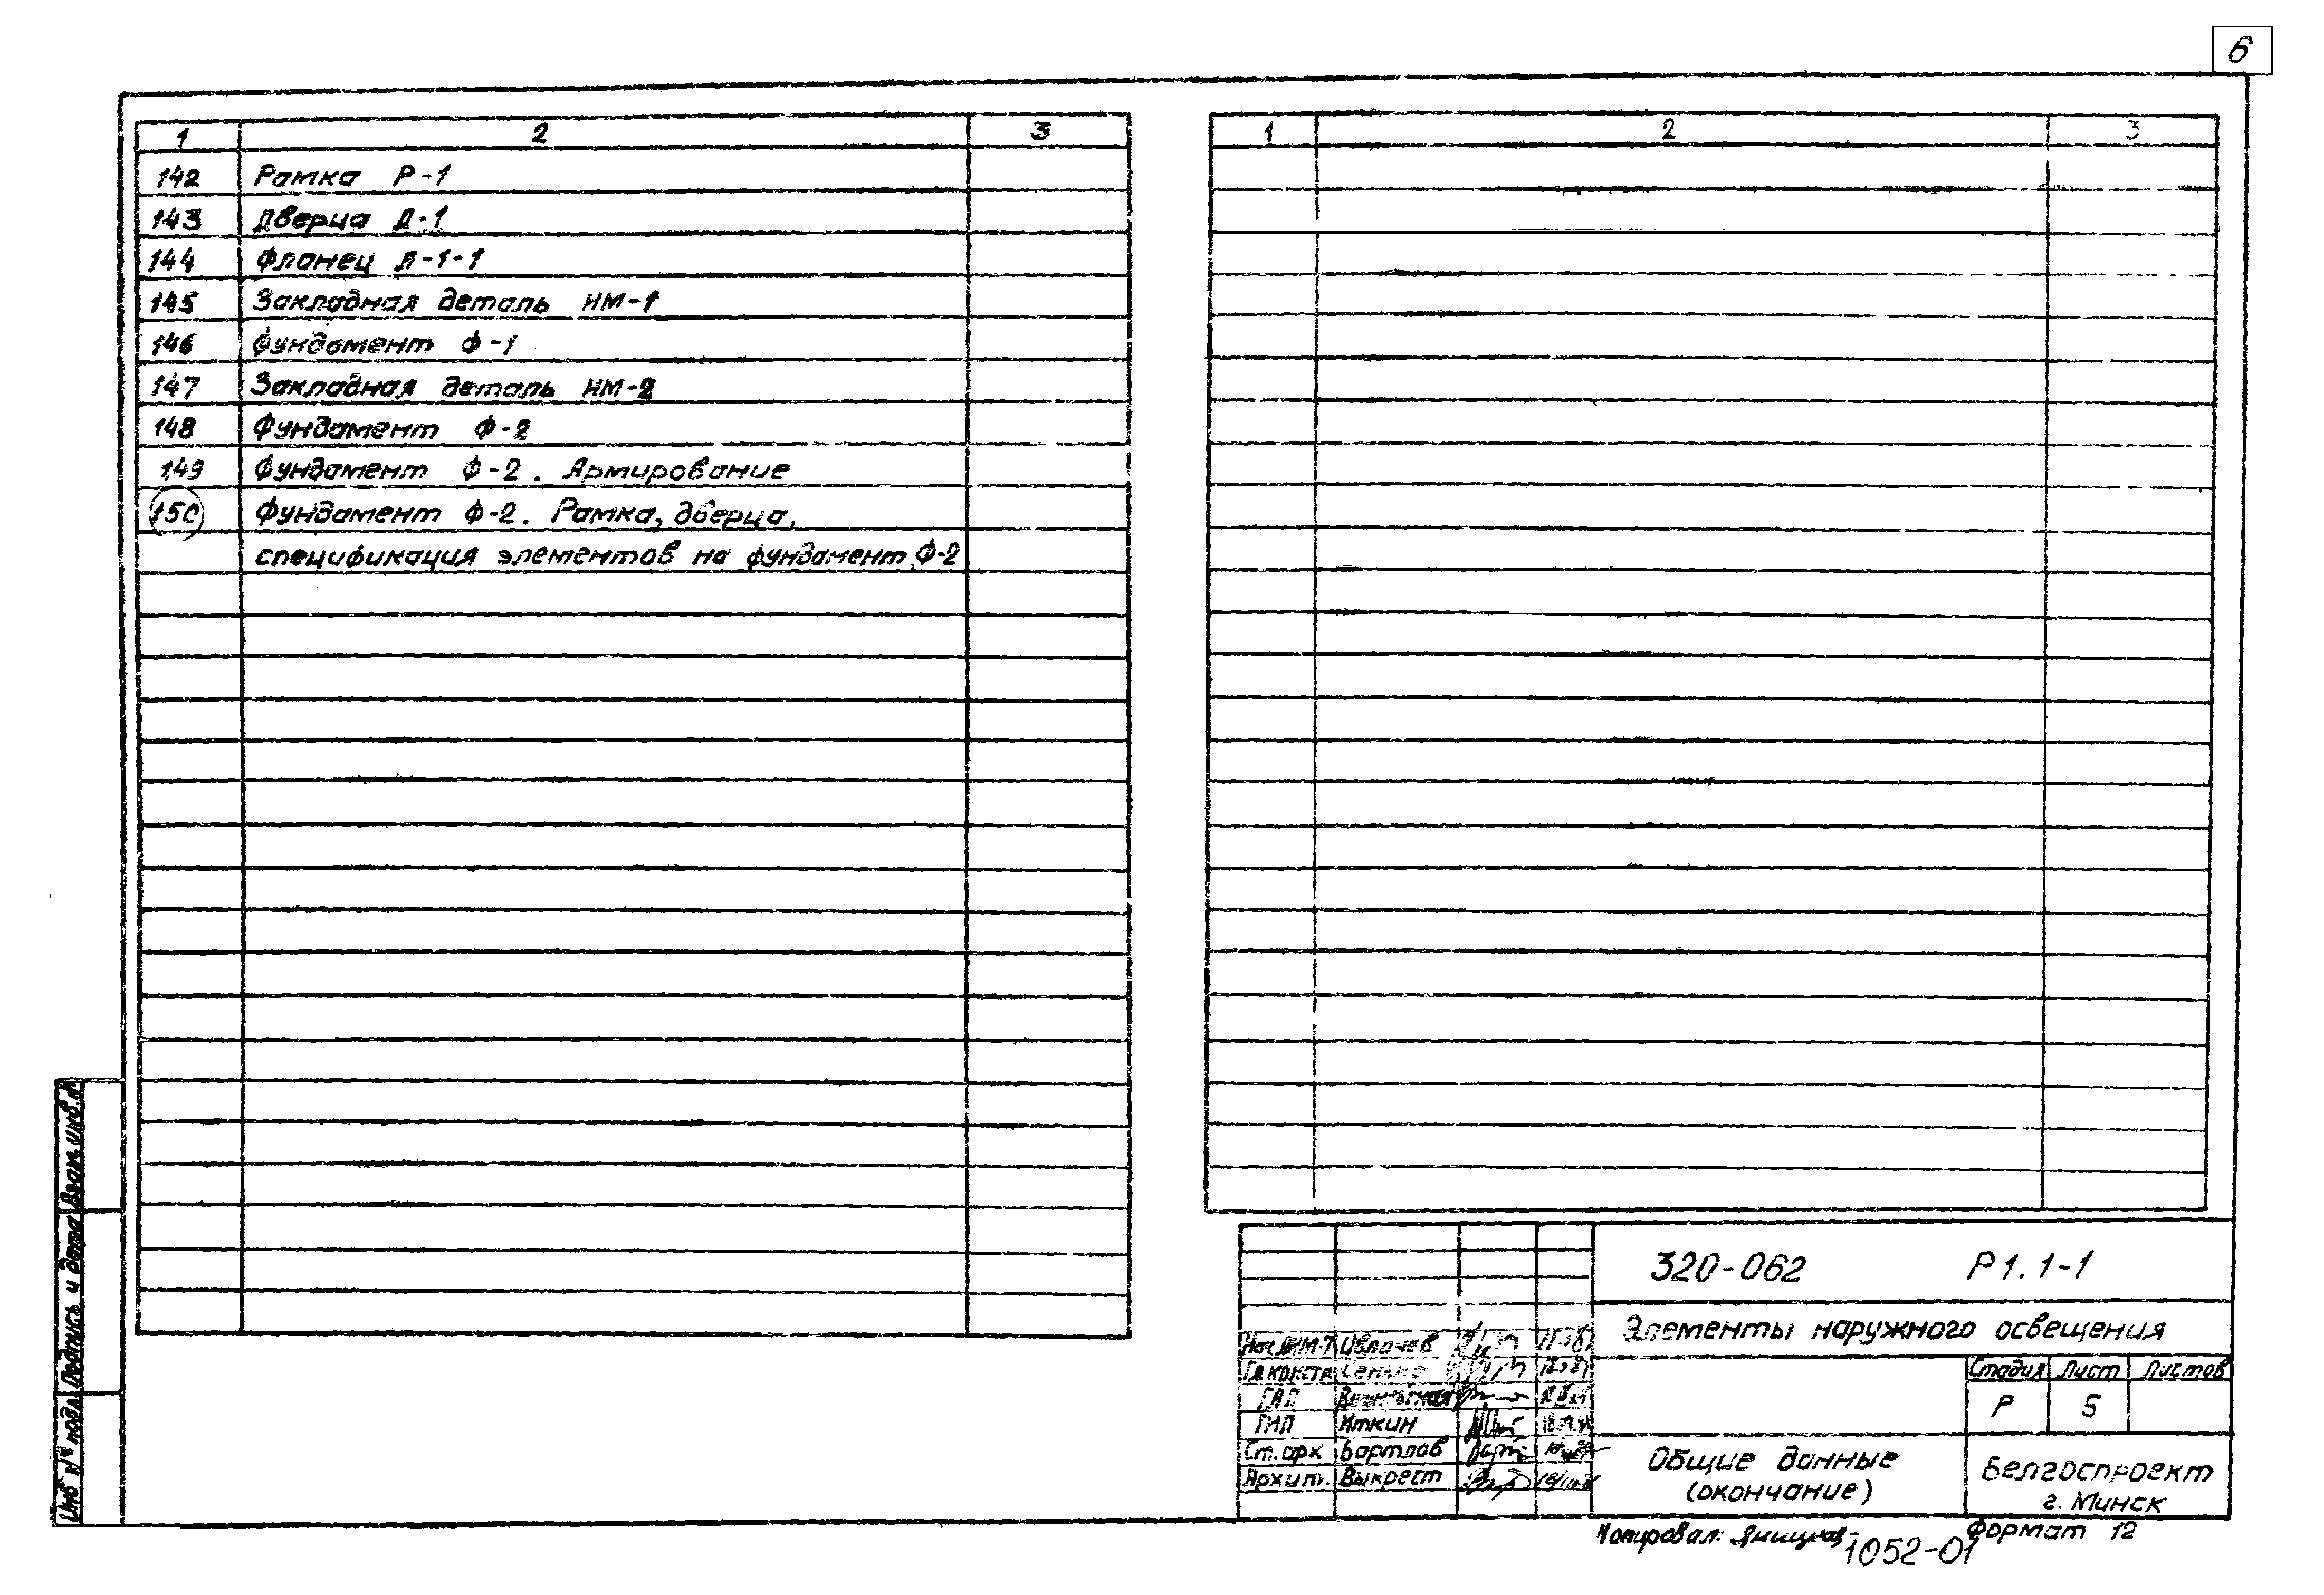 6
1 2 3
142 Рамка Р-1
143 Дверца Д-1
144 Фланец Л-1-1
145 Закладная деталь НМ-1
146 Фундамент Ф-1
147 Закладная деталь НМ-2
148 Фундамент Ф-2
149 Фундамент Ф-2. Армирование
150 Фундамент Ф-2. Рамка, дверца,
спецификация элементов на фундамент Ф-2
1 2 3
320-062 Р1.1-1
Элементы наружного освещения
Стадия Лист Листов
Р 5
Общие данные
(окончание)
Белгоспроект
г. Минск
Гл. констр.
ГАП
ГИП Иткин
Ст. арх Бартлов
Архит. Выкрест
Инв № подл. Подпись и дата Взам. инв. №
Копировал: Формат 12
1052-01